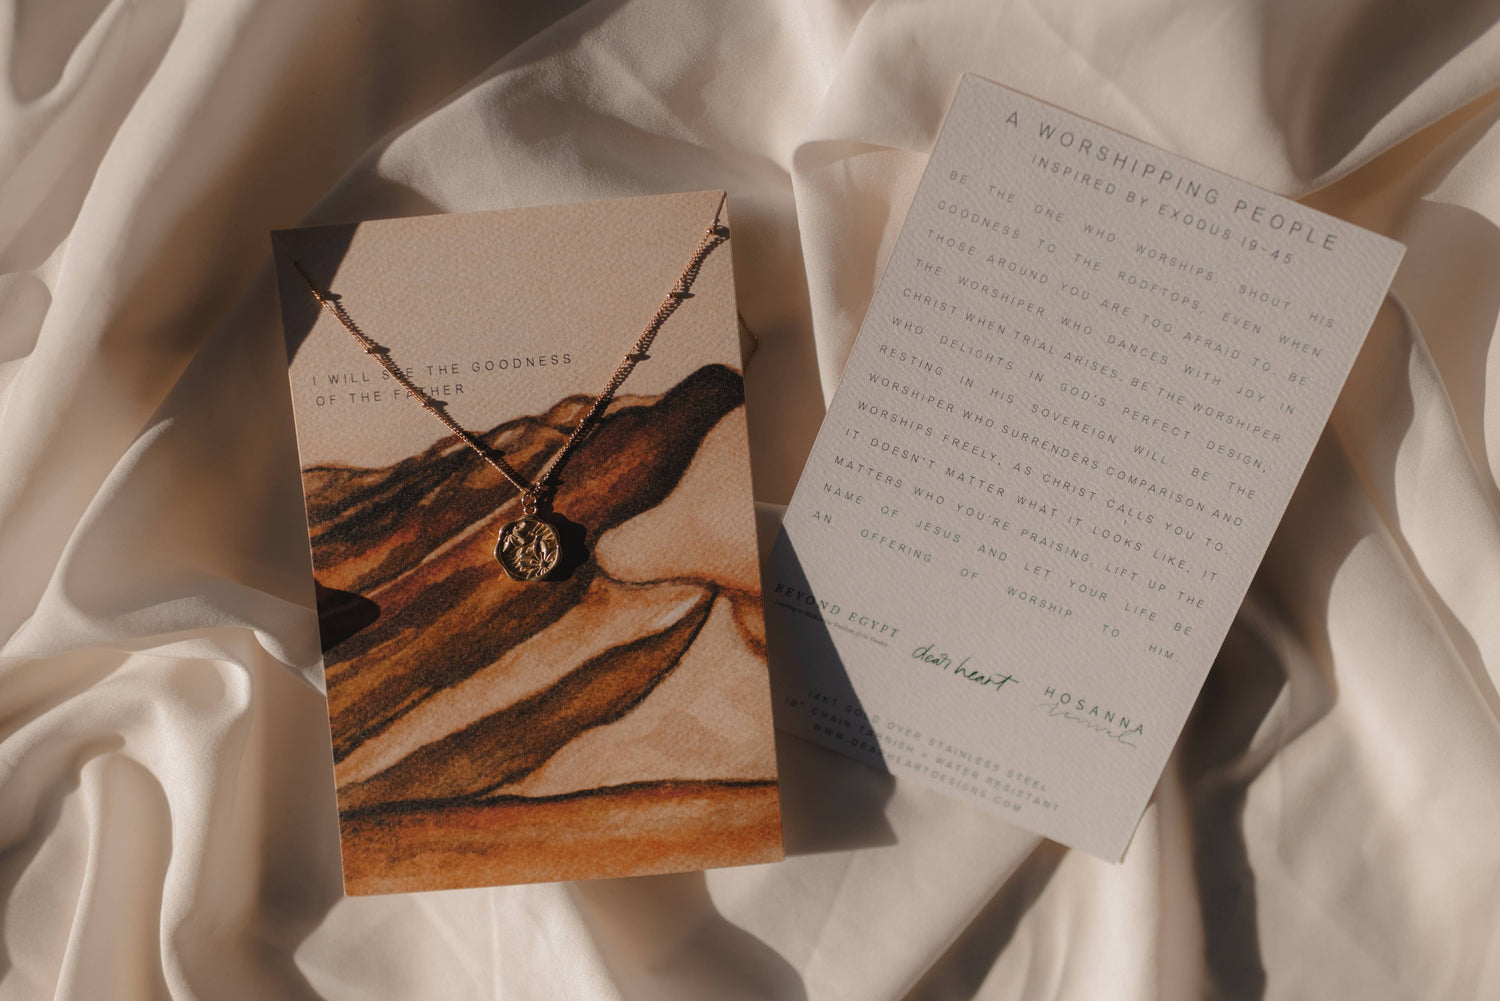 I WILL SEE THE GOODNESS
OF THE FATHER
A WORSHIPPING PEOPLE
INSPIRED BY EXODUS 19-45
BE THE ONE WHO WORSHIPS. SHOUT HIS
GOODNESS TO THE ROOFTOPS, EVEN WHEN
THOSE AROUND YOU ARE TOO AFRAID TO. BE
THE WORSHIPER WHO DANCES WITH JOY IN
CHRIST WHEN TRIAL ARISES. BE THE WORSHIPER
WHO DELIGHTS IN GOD'S PERFECT DESIGN,
RESTING IN HIS SOVEREIGN WILL. BE THE
WORSHIPER WHO SURRENDERS COMPARISON AND
WORSHIPS FREELY, AS CHRIST CALLS YOU TO.
IT DOESN'T MATTER WHAT IT LOOKS LIKE, IT
MATTERS WHO YOU'RE PRAISING. LIFT UP THE
NAME OF JESUS AND LET YOUR LIFE BE
AN OFFERING OF WORSHIP TO HIM.
BEYOND EGYPT
Learning to Walk in the Freedom of Our Father
dear heart
HOSANNA
Revival
14KT GOLD OVER STAINLESS STEEL
18" CHAIN TARNISH + WATER RESISTANT
WWW.DEARHEARTDESIGNS.COM